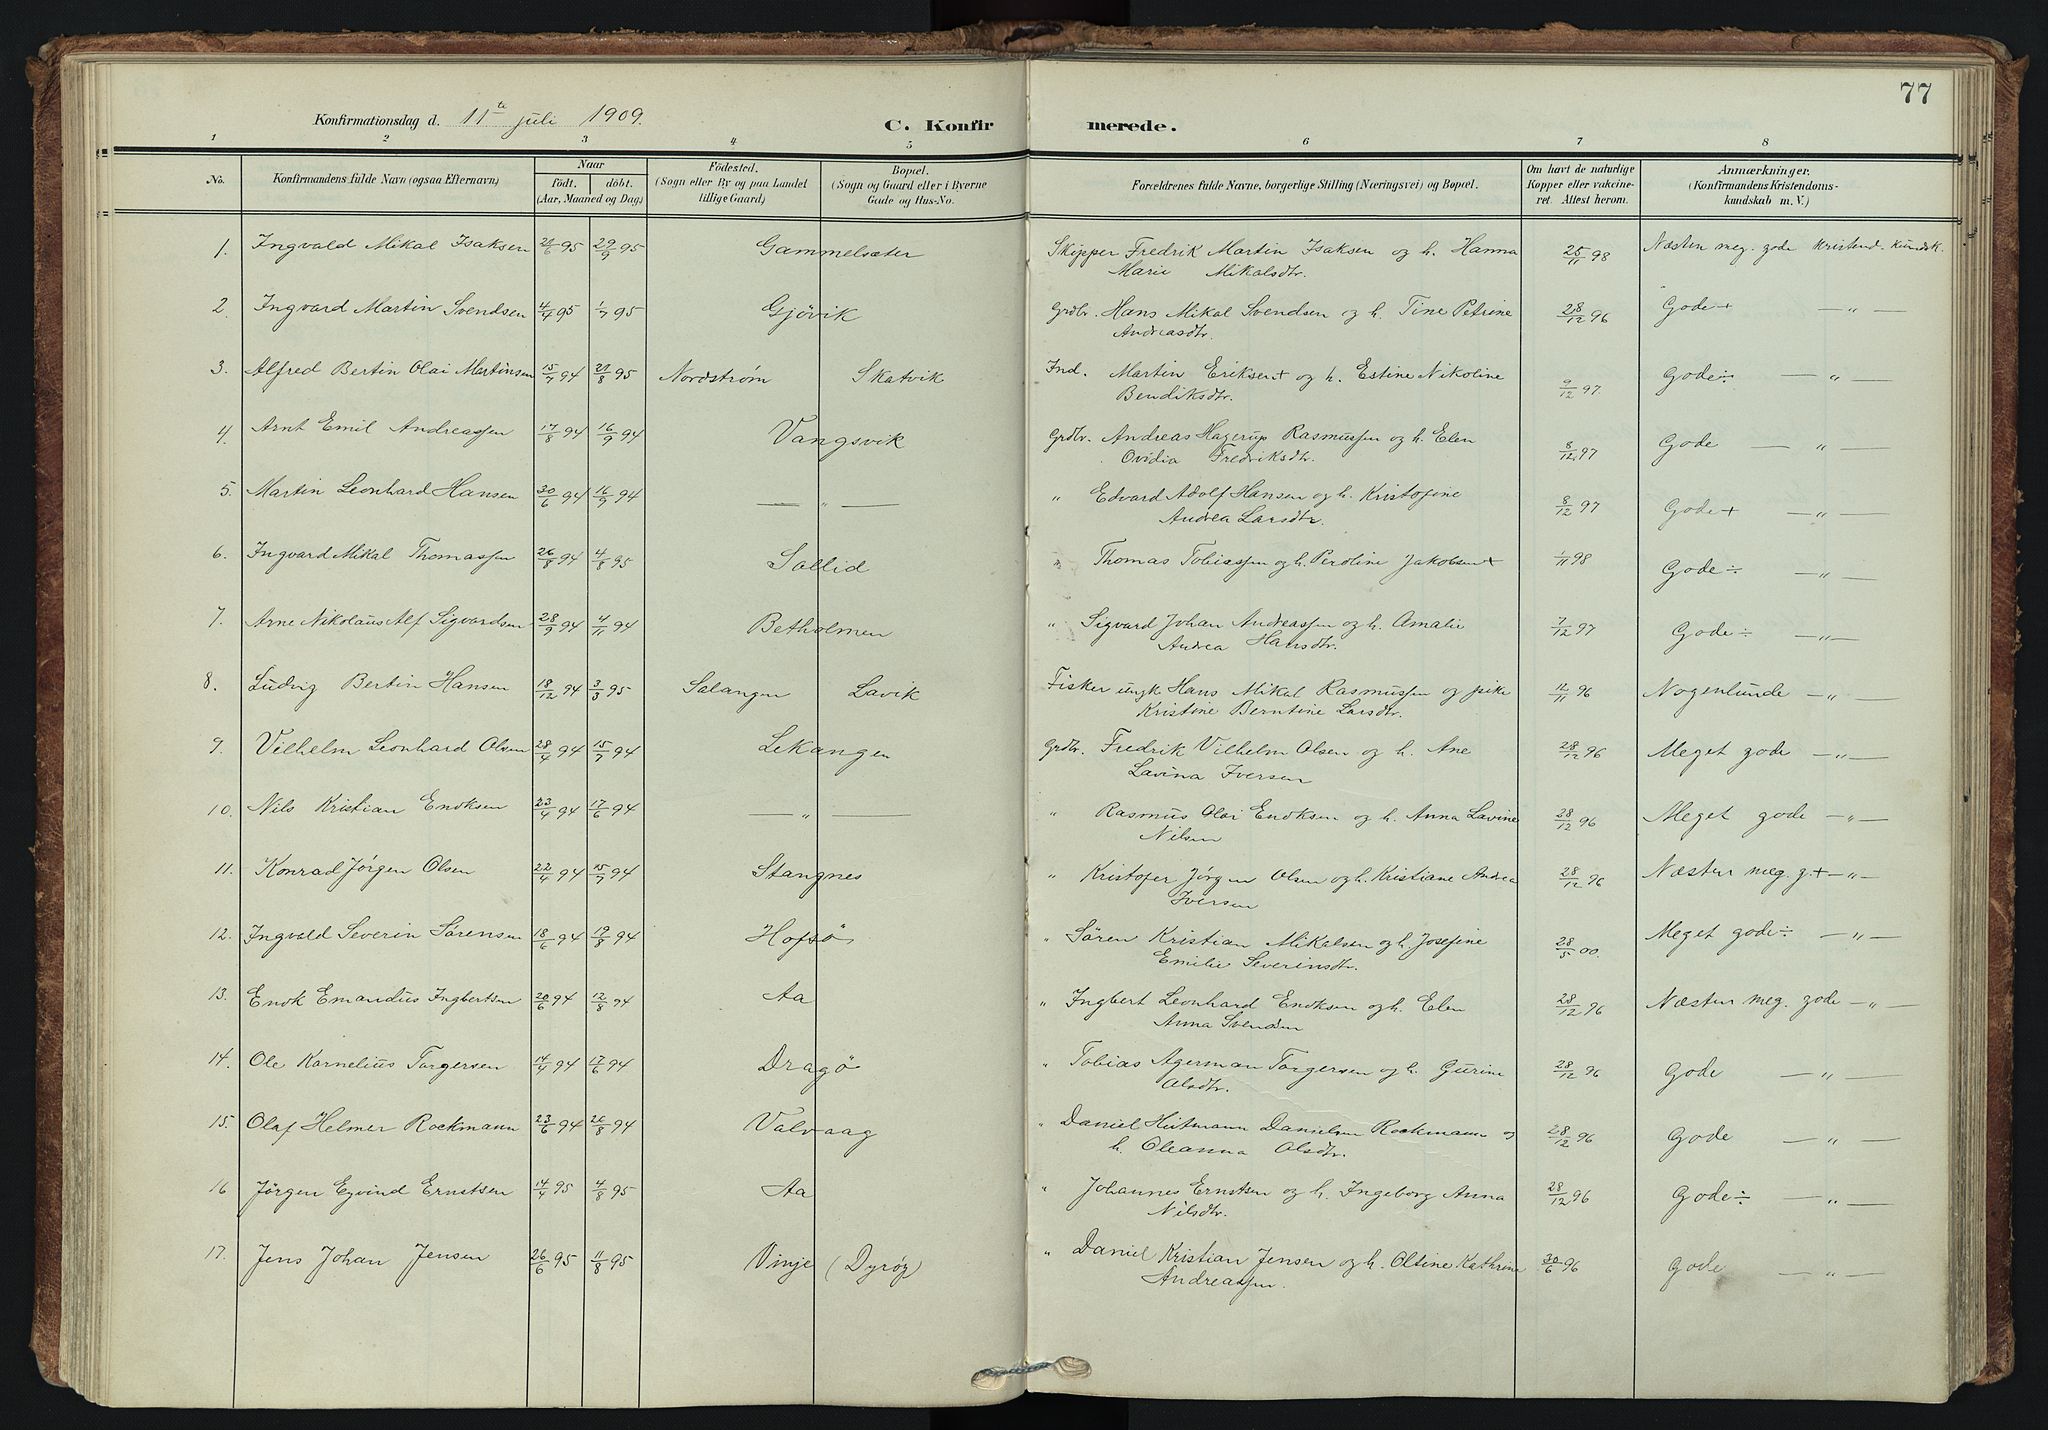 77
Konfirmationsdag d. 11te juli 1909. C. Konfirmerede.
1 2 3 4 5 6 7 8
No. Konfirmandens fulde Navn (ogsaa Efternavn) Naar födt. döbt. (Aar, Maaned og Dag) Födested. (Sogn eller By og paa Landet tillige Gaard) Bopæl. (Sogn og Gaard eller i Byerne Gade og Hus-No. Forældrenes fulde Navne, borgerlige Stilling (Næringsvei) og Bopæl. Om havt de naturlige Kopper eller vakcineret. Attest herom. Anmærkninger. (Konfirmandens Kristendomskundskab m. V.)
1. Ingvald Mikal Isaksen 21/6 95 29/9 95 Gammelsæter Skipper Fredrik Martin Isaksen og h. Hanna 25/11 98 Næsten meg. gode Kristend. kundsk.
Marie Mikalsdtr.
2. Ingvard Martin Svendsen 4/4 95 1/7 95 Gjövik Grdbr. Hans Mikal Svendsen og h. Tine Petrine 28/12 96 Gode+ — „ —
Andreasdtr.
3. Alfred Bertin Olai Martinsen 15/7 94 21/8 95 Nordstrøm Skatvik Ind. Martin Eriksen+ og h. Estine Nikoline 9/12 97. Gode÷ — „ —
Bendiksdtr.
4. Arnt Emil Andreassen 17/8 94 16/9 94 Vangsvik Grdbr. Andreas Hagerup Rasmussen og h. Elen 8/12 97 Gode — „ —
Ovidia Fredriksdtr.
5. Martin Leonhard Hansen 30/6 94 16/9 94 — „ — „ Edvard Adolf Hansen og h. Kristofine 8/12 97 Gode+ — „ —
Andrea Larsdtr.
6. Ingvard Mikal Thomassen 26/8 94 4/8 95 Sollid „ Thomas Tobiassen og h. Peroline Jakobsen+ 1/11 98 Gode÷ — „ —
7. Arne Nikolaus Alf Sigvardsen 28/9 94 4/11 94 Betholmen „ Sigvard Johan Andreassen og h. Amalie 7/12 97 Gode÷ — „ —
Andrea Hansdtr.
8. Ludvig Bertin Hansen 18/12 94 3/3 95 Salangen Lavik Fisker ungk Hans Mikal Rasmussen og pike 12/11 96 Nogenlunde — „ —
Kristine Berntine Larsdtr.
9. Vilhelm Leonhard Olsen 28/4 94 15/7 94 Lekangen Grdbr. Fredrik Vilhelm Olsen og h. Ane 28/12 96 Meget gode — „ —
Lavina Iversen
10. Nils Kristian Enoksen 23/4 94 17/6 94 — „ — „ Rasmus Olai Enoksen og h. Anna Lavine 28/12 96 Meget gode — „ —
Nilsen
11. Konrad Jörgen Olsen 22/4 94 15/7 94 Stangnes „ Kristofer Jörgen Olsen og h. Kristiane Andrea 28/12 96 Næsten meg. g.+ — „ —
Iversen
12. Ingvald Severin Sörensen 18/6 94 19/8 94 Hofsö „ Sören Kristian Mikalsen og h. Josefine 28/5 00. Meget gode÷ — „ —
Emilie Severinsdtr.
13. Enok Emandus Ingbertsen 20/6 94 12/8 94 Aa „ Ingbert Leonhard Enoksen og h. Elen 28/12 96 Næsten meg. gode — „ —
Anna Svendsen
14. Ole Kornelius Torgersen 14/4 94 17/6 94 Dragö „ Tobias Agerman Torgersen og h. Gurine 28/12 96 Gode — „ —
Olsdtr.
15. Olaf Helmer Rockmann 23/6 94 26/8 94 Valvaag „ Daniel Heitmann Danielsen Rockmann og 28/12 96 Gode — „ —
h. Oleanna Olsdtr.
16 Jörgen Eyvind Ernstsen 14/4 95 4/8 95 Aa „ Johannes Ernstsen og h. Ingeborg Anna 28/12 96 Gode÷ — „ —
Nilsdtr.
17. Jens Johan Jensen 26/6 95 11/8 95 Vinje (Dyröy) „ Daniel Kristian Jensen og h. Oltine Kathrine 30/6 96 Gode — „ —
Andreassen.